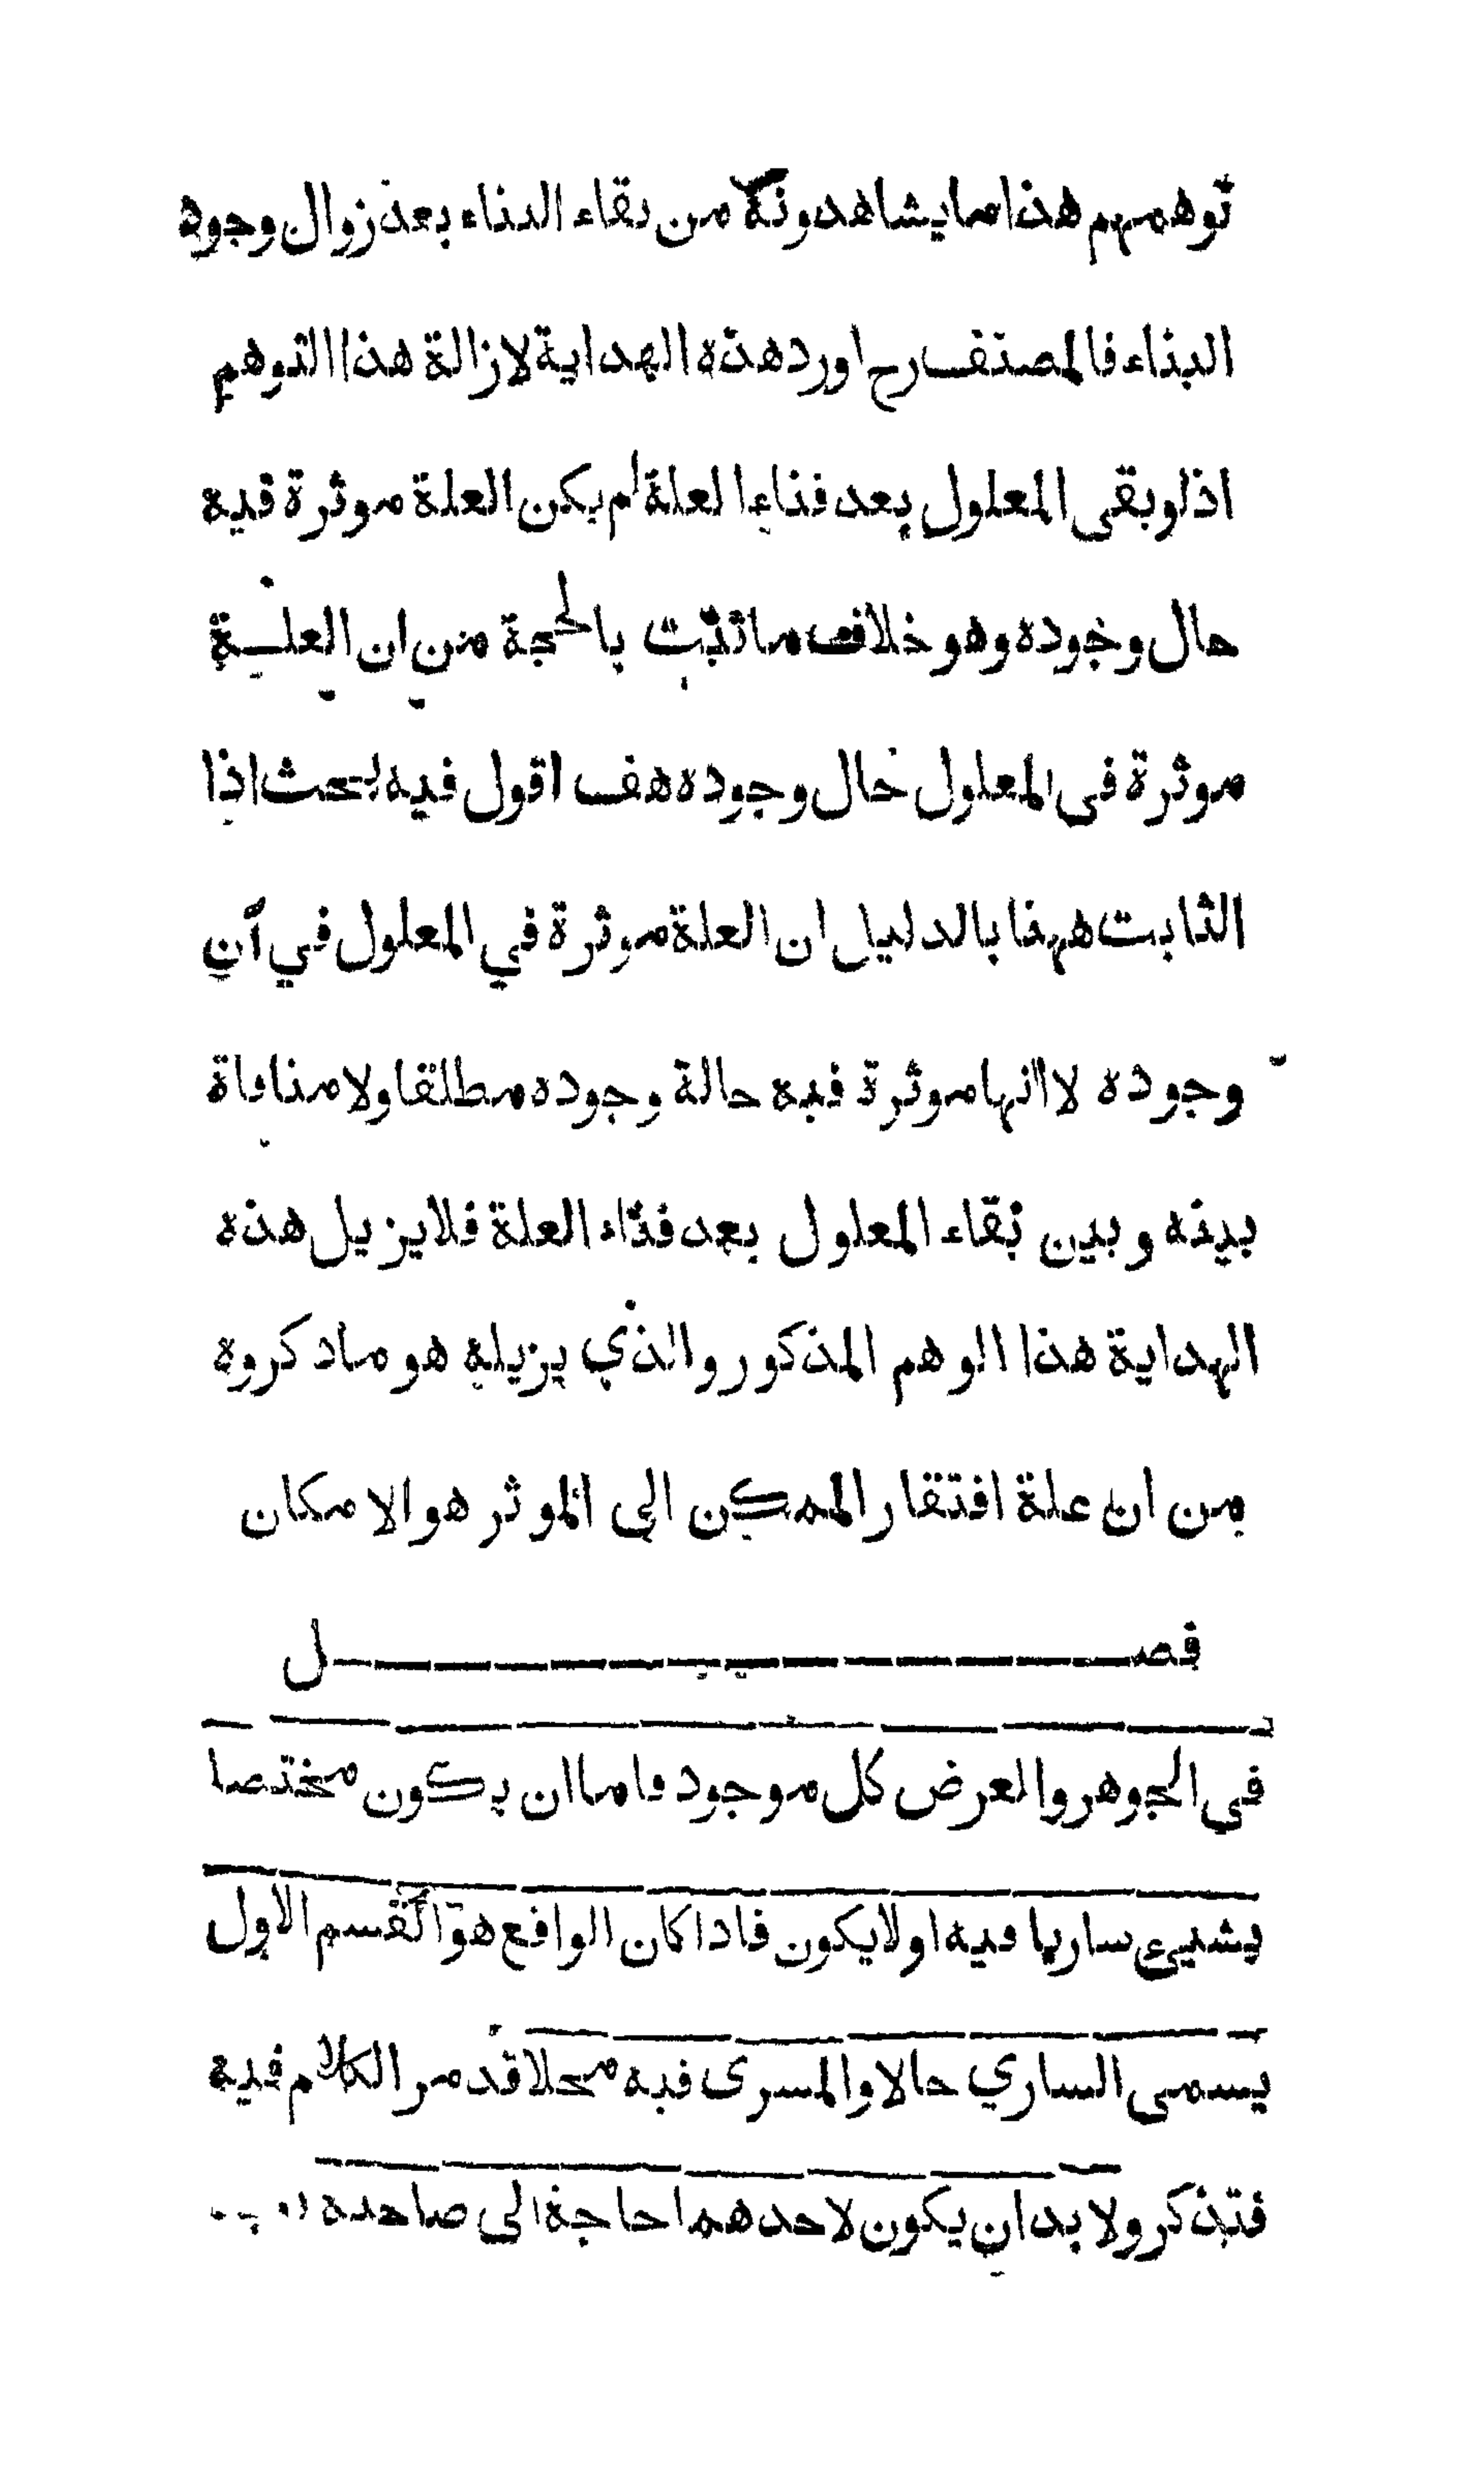 توهمهم هذا ما يشاهدونه من بقاء البناء بعد زوال وجود
البناء فالمصنف رح اورد هذه الهداية لازالة هذا التوهم
اذ لو بقى المعلول بعد فناء العلة لم يكن العلة موثرة فيه
حال وجوده وهو خلاف ما ثبت بالحجة من ان العلة
موثرة فى المعلول حال وجوده هف اقول فيه بحث اذا
الثابت ههنا بالدليل ان العلة موثرة في المعلول في آن
وجوده لا انها موثرة فيه حالة وجوده مطلقا ولا منافاة
بينه و بين بقاء المعلول بعد فناء العلة فلا يزيل هذه
الهداية هذا الوهم المذكور والذي يزيله هو ما ذكروه
من ان علة افتقار الممكن الى الموثر هو الامكان
فصل
فى الجوهر والعرض كل موجود فاما ان يكون مختصا
بشيء ساريا فيه اولا يكون فاذا كان الواقع هو القسم الاول
يسمى الساري حالا والمسرى فيه محلا قد مر الكلام فيه
فتذكر ولا بد ان يكون لاحدهما حاجة الى صاحبه